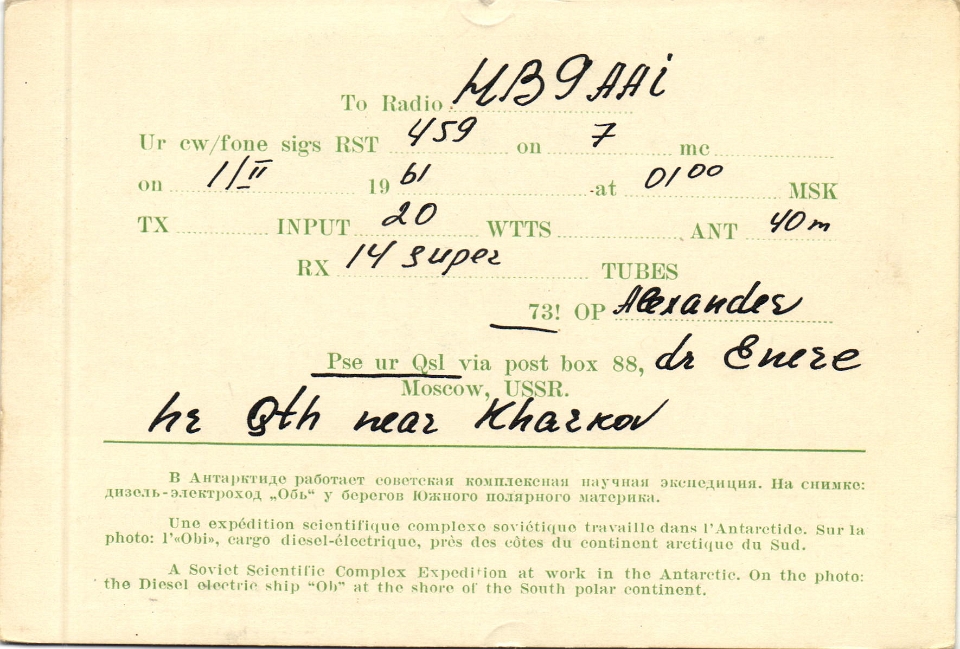 To Radio HB9AAi
Ur cw/fone sigs RST 459 on 7 mc
on 1/II 1961 at 01⁰⁰ MSK
TX INPUT 20 WTTS ANT 40m
RX 14 super TUBES
73! OP Alexander
Pse ur Qsl via post box 88, dr
Moscow, USSR.
hr Qth near Kharkov
В Антарктиде работает советская комплексная научная экспедиция. На снимке:
дизель-электроход „Обь“ у берегов Южного полярного материка.
Une expédition scientifique complexe soviétique travaille dans l'Antarctide. Sur la
photo: l'«Obi», cargo diesel-électrique, près des côtes du continent arctique du Sud.
A Soviet Scientific Complex Expedition at work in the Antarctic. On the photo:
the Diesel electric ship “Ob” at the shore of the South polar continent.